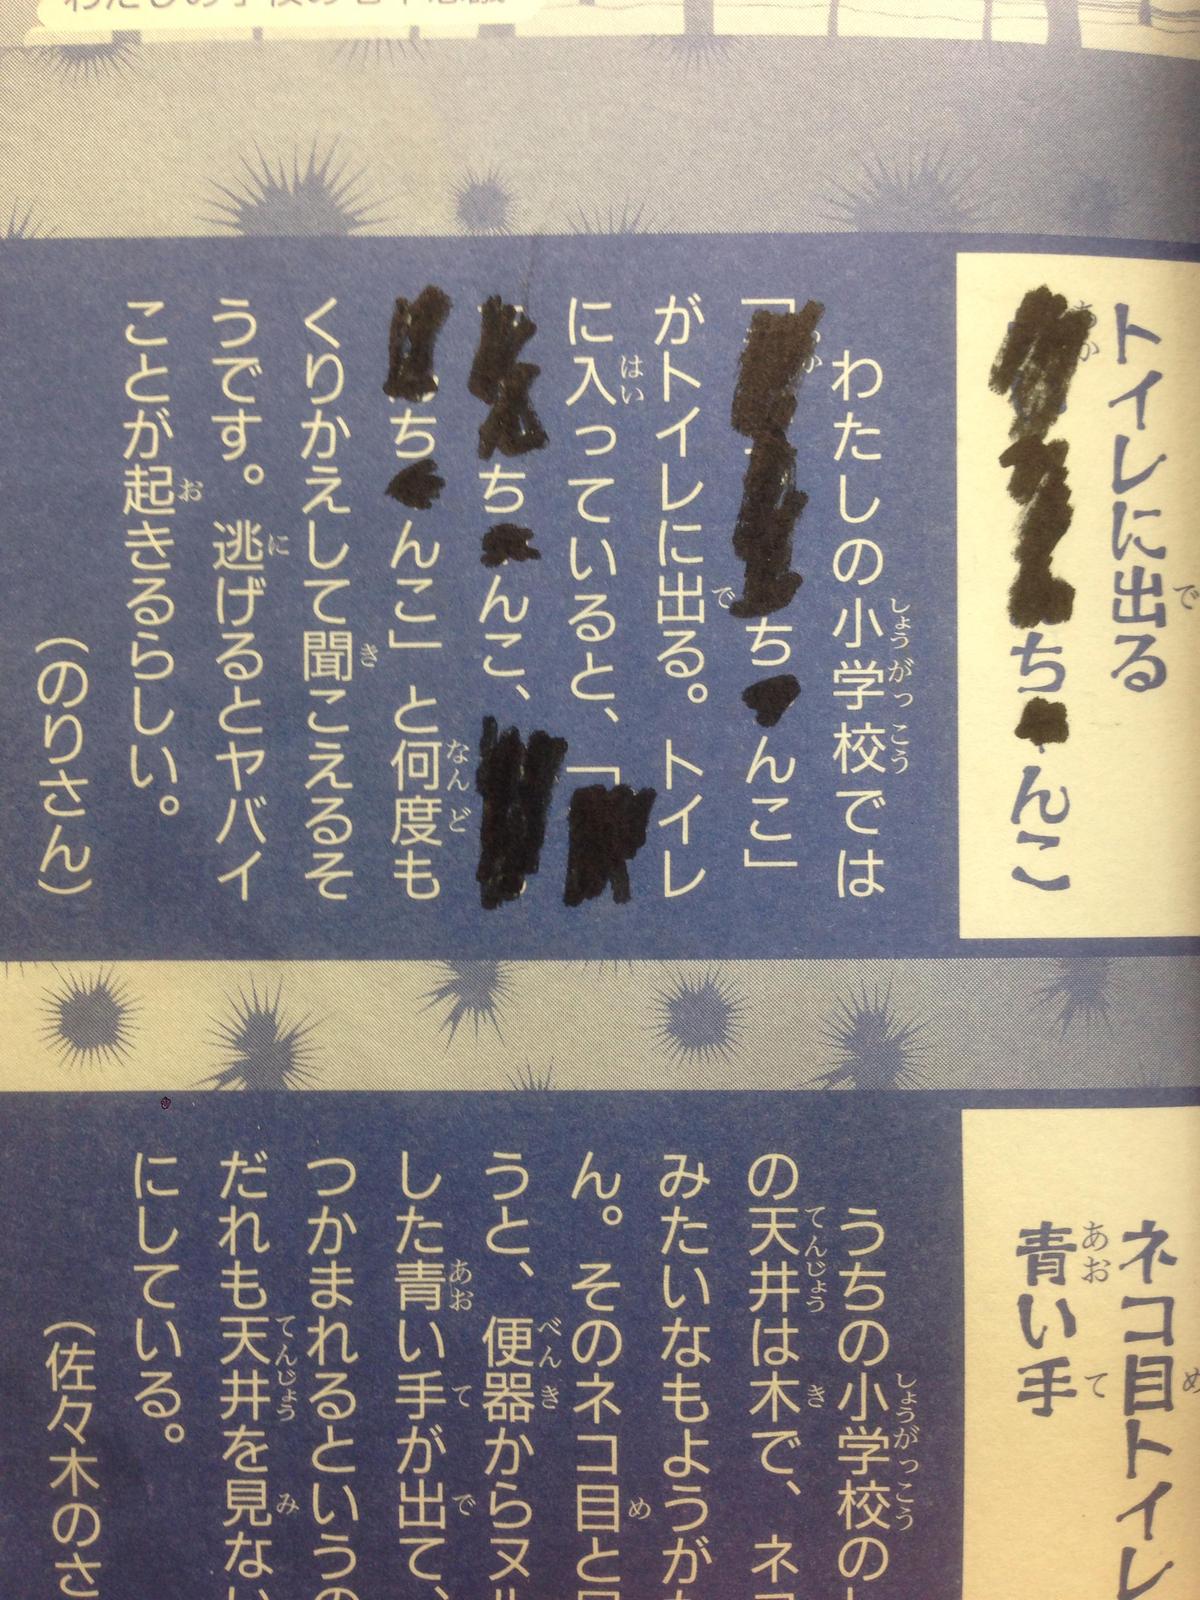 トイレに出る
ち んこ
わたしの小学校では
「 ち んこ」
がトイレに出る。トイレ
に入っていると、「
ち んこ、
ち んこ」と何度も
くりかえして聞こえるそ
うです。逃げるとヤバイ
ことが起きるらしい。
(のりさん)
ネコ目トイレ
青い手
うちの小学校の
の天井は木で、ネコ
みたいなもようが
ん。そのネコ目と
うと、便器からヌル
した青い手が出て、
つかまれるというの
だれも天井を見ない
にしている。
(佐々木のさ